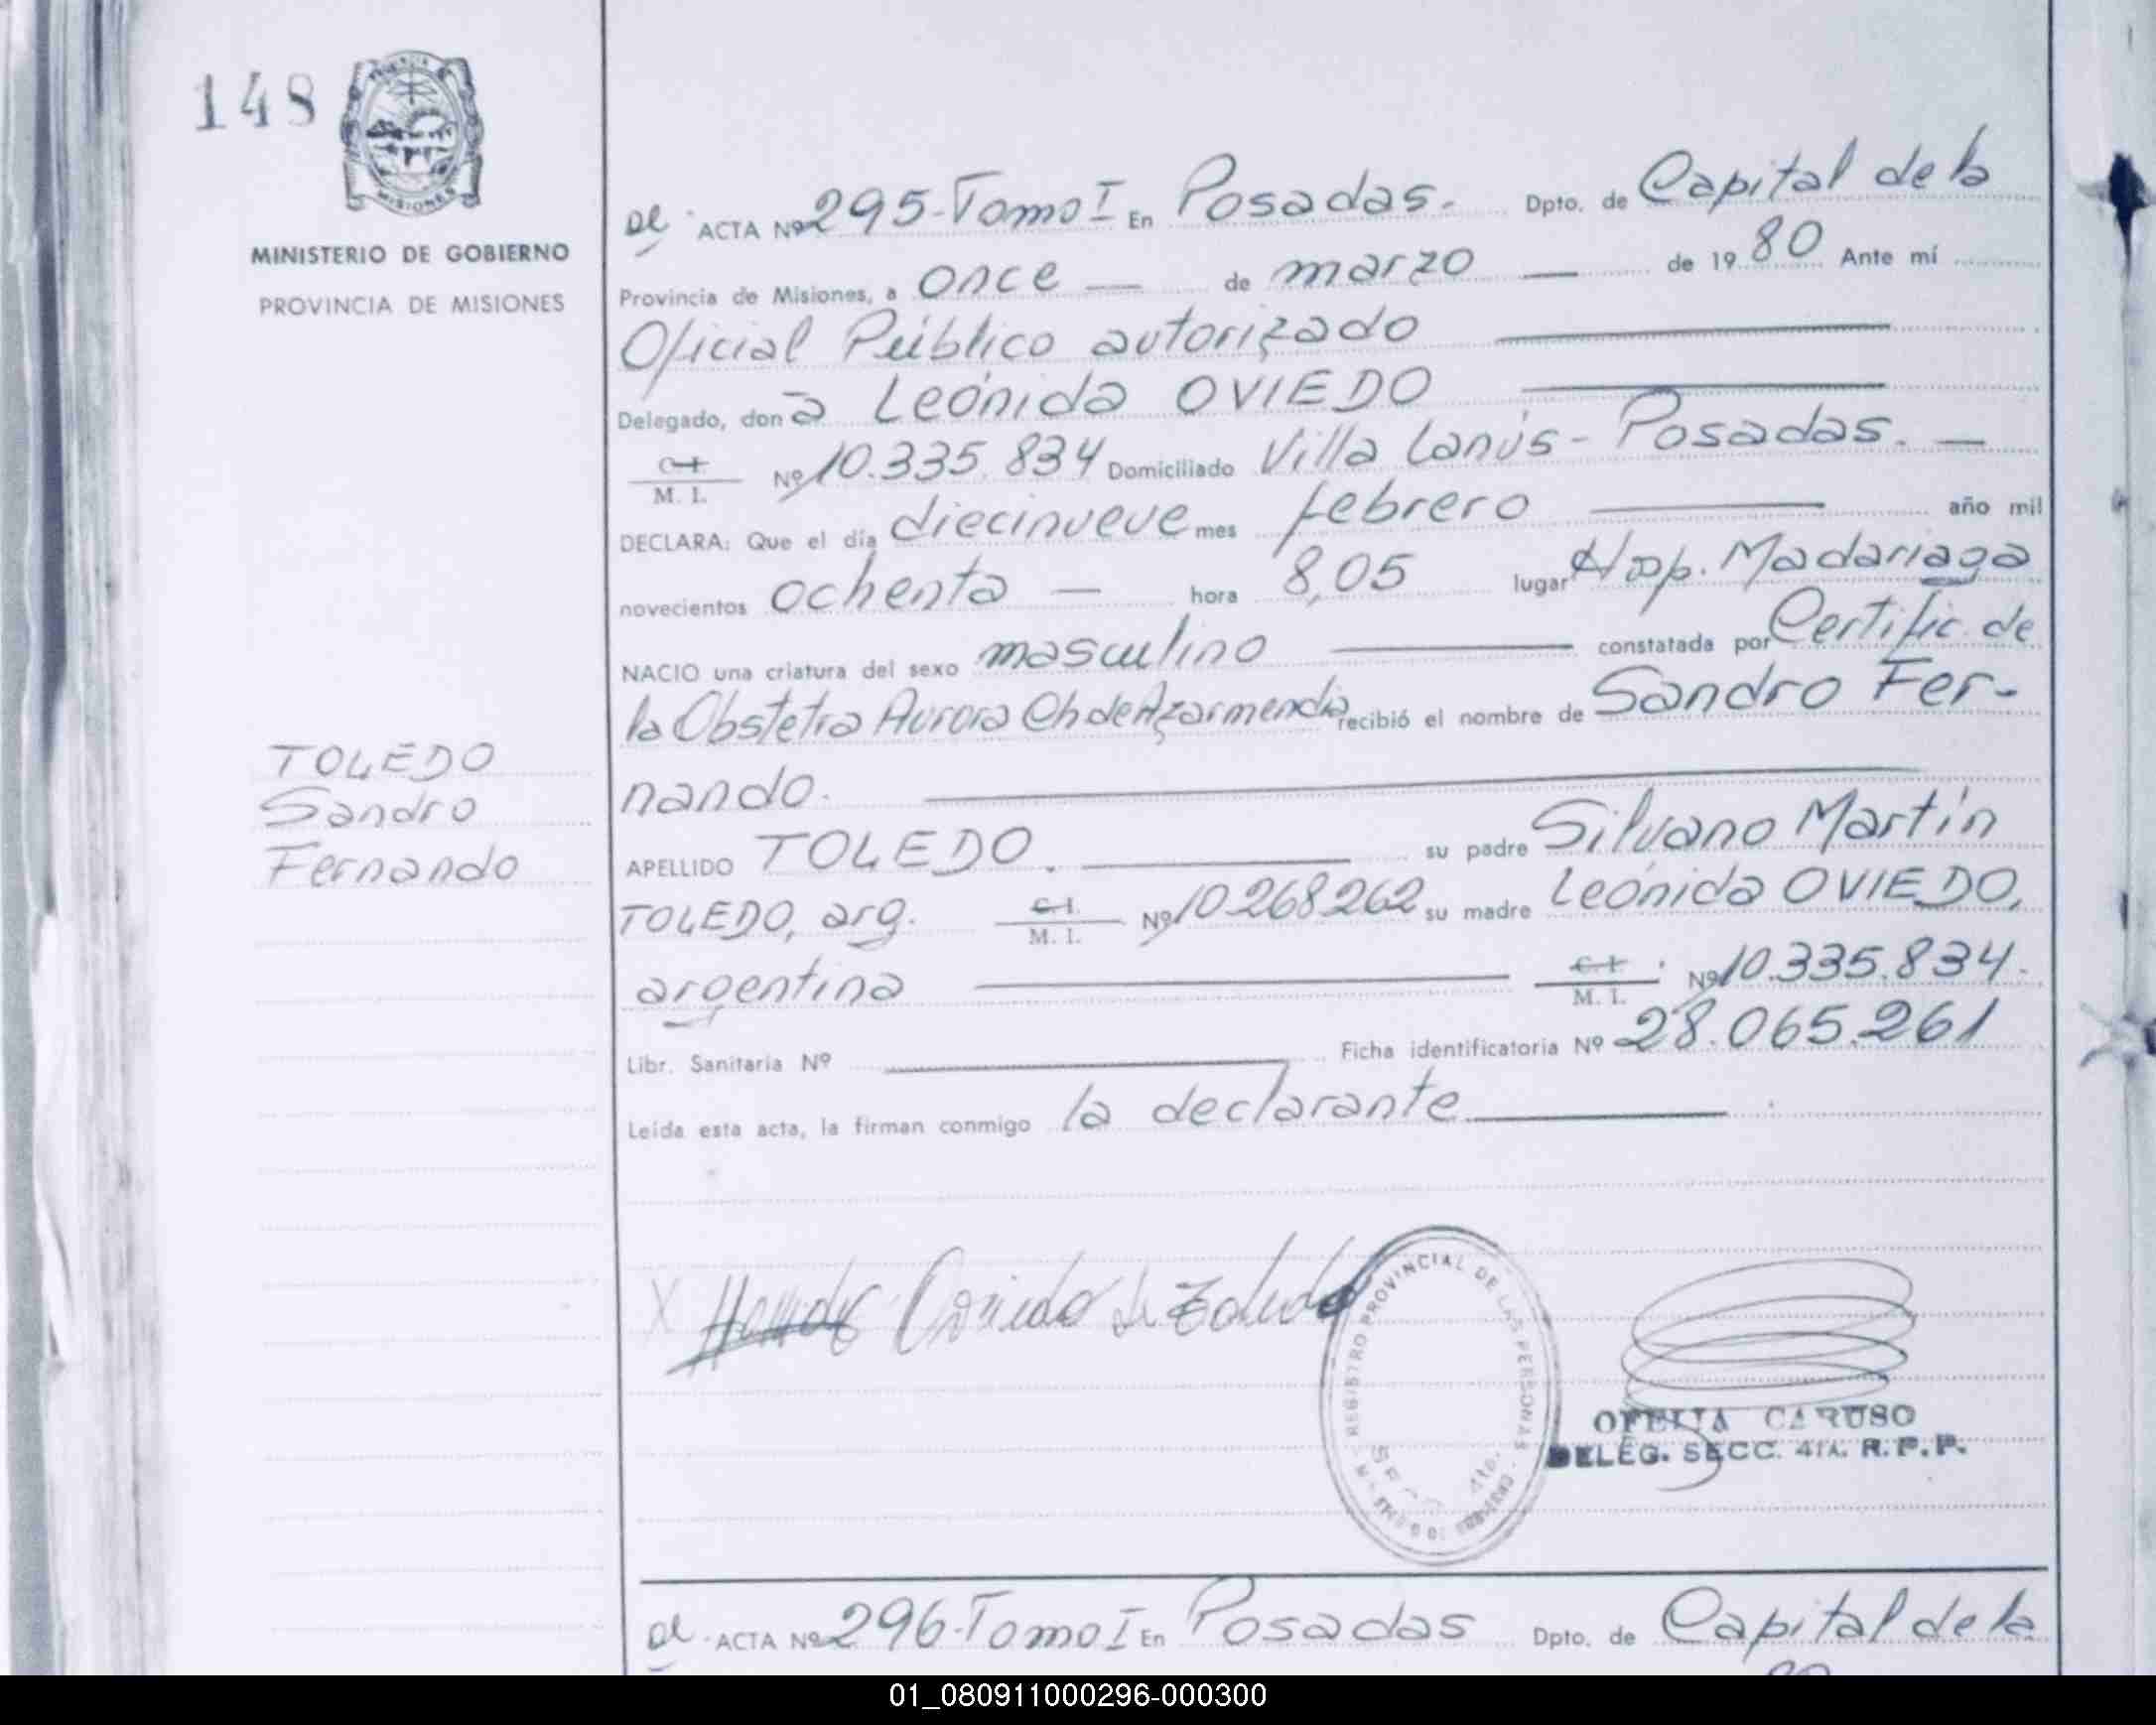 148
MISIONES
MINISTERIO DE GOBIERNO
PROVINCIA DE MISIONES
TOLEDO
Sandro
Fernando
ACTA Nº 295-Tomo I En Posadas. Dpto. de Capital de la
Provincia de Misiones, a once — de marzo — de 19 80 Ante mí
Oficial Público autorizado
Delegado, don a Leónida OVIEDO
C.I.
M. I. Nº 10.335.834 Domiciliado Villa Lanús - Posadas. —
DECLARA: Que el día diecinueve mes febrero año mil
novecientos ochenta — hora 8,05 lugar Hosp. Madariaga
NACIO una criatura del sexo masculino constatada por Certific. de
la Obstetra Aurora Ch de Azarmendia recibió el nombre de Sandro Fer-
nando.
APELLIDO TOLEDO. su padre Silvano Martín
TOLEDO, arg. C.I. M. I. Nº 10268262 su madre Leónida OVIEDO,
argentina C.I. M. I. Nº 10.335.834.
Libr. Sanitaria Nº Ficha identificatoria Nº 28.065.261
Leída esta acta, la firman conmigo la declarante
X Oviedo de Toledo
REGISTRO PROVINCIAL DE LAS PERSONAS
OFELIA CARUSO
DELEG. SECC. 4TA. R.P.P.
ACTA Nº 296-Tomo I En Posadas Dpto. de Capital de la
01_080911000296-000300